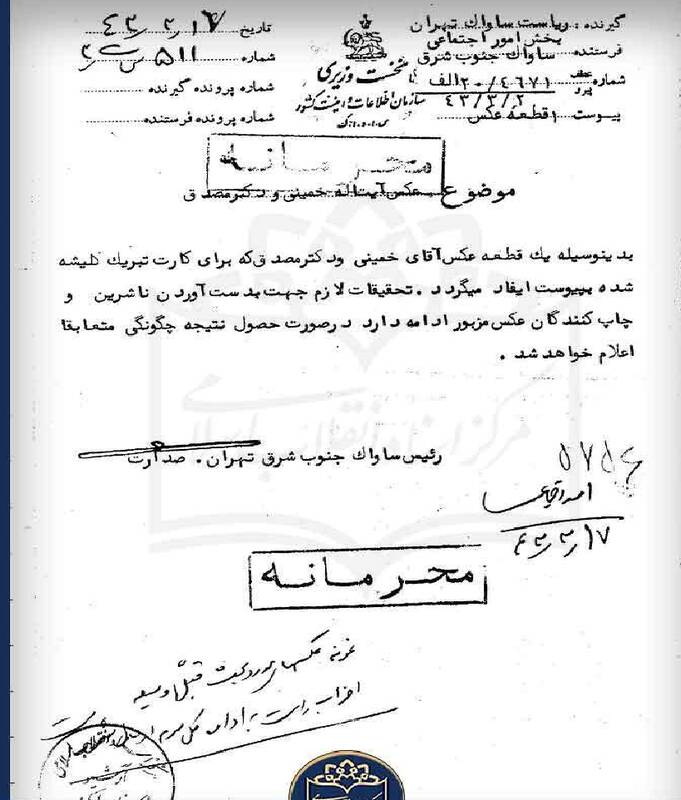 گیرنده : ریاست ساواک تهران
بخش امور اجتماعی
فرستنده : ساواک جنوب شرق
شماره ۲۰/۴۶۷۱ الف
۴۳/۳/۲
پیوست ۱ قطعه عکس
نخست وزیری
سازمان اطلاعات و امنیت کشور
س.ا.و.ا.ک
تاریخ ۴۳/۳/۱۷
شماره ۵۱۱
شماره پرونده گیرنده
شماره پرونده فرستنده
محرمانه
موضوع عکس آیت اله خمینی و دکتر مصدق
بدینوسیله یک قطعه عکس آقای خمینی و دکتر مصدق که برای کارت تبریک کلیشه
شده بپیوست ایفاد میگردد . تحقیقات لازم جهت بدست آوردن ناشرین و
چاپ کنندگان عکس مزبور ادامه دارد در صورت حصول نتیجه چگونگی متعاقبا
اعلام خواهد شد .
رئیس ساواک جنوب شرق تهران . صدارت
۴۳/۳/۱۷
محرمانه
نمونه عکس
مرکز اسناد انقلاب اسلامی